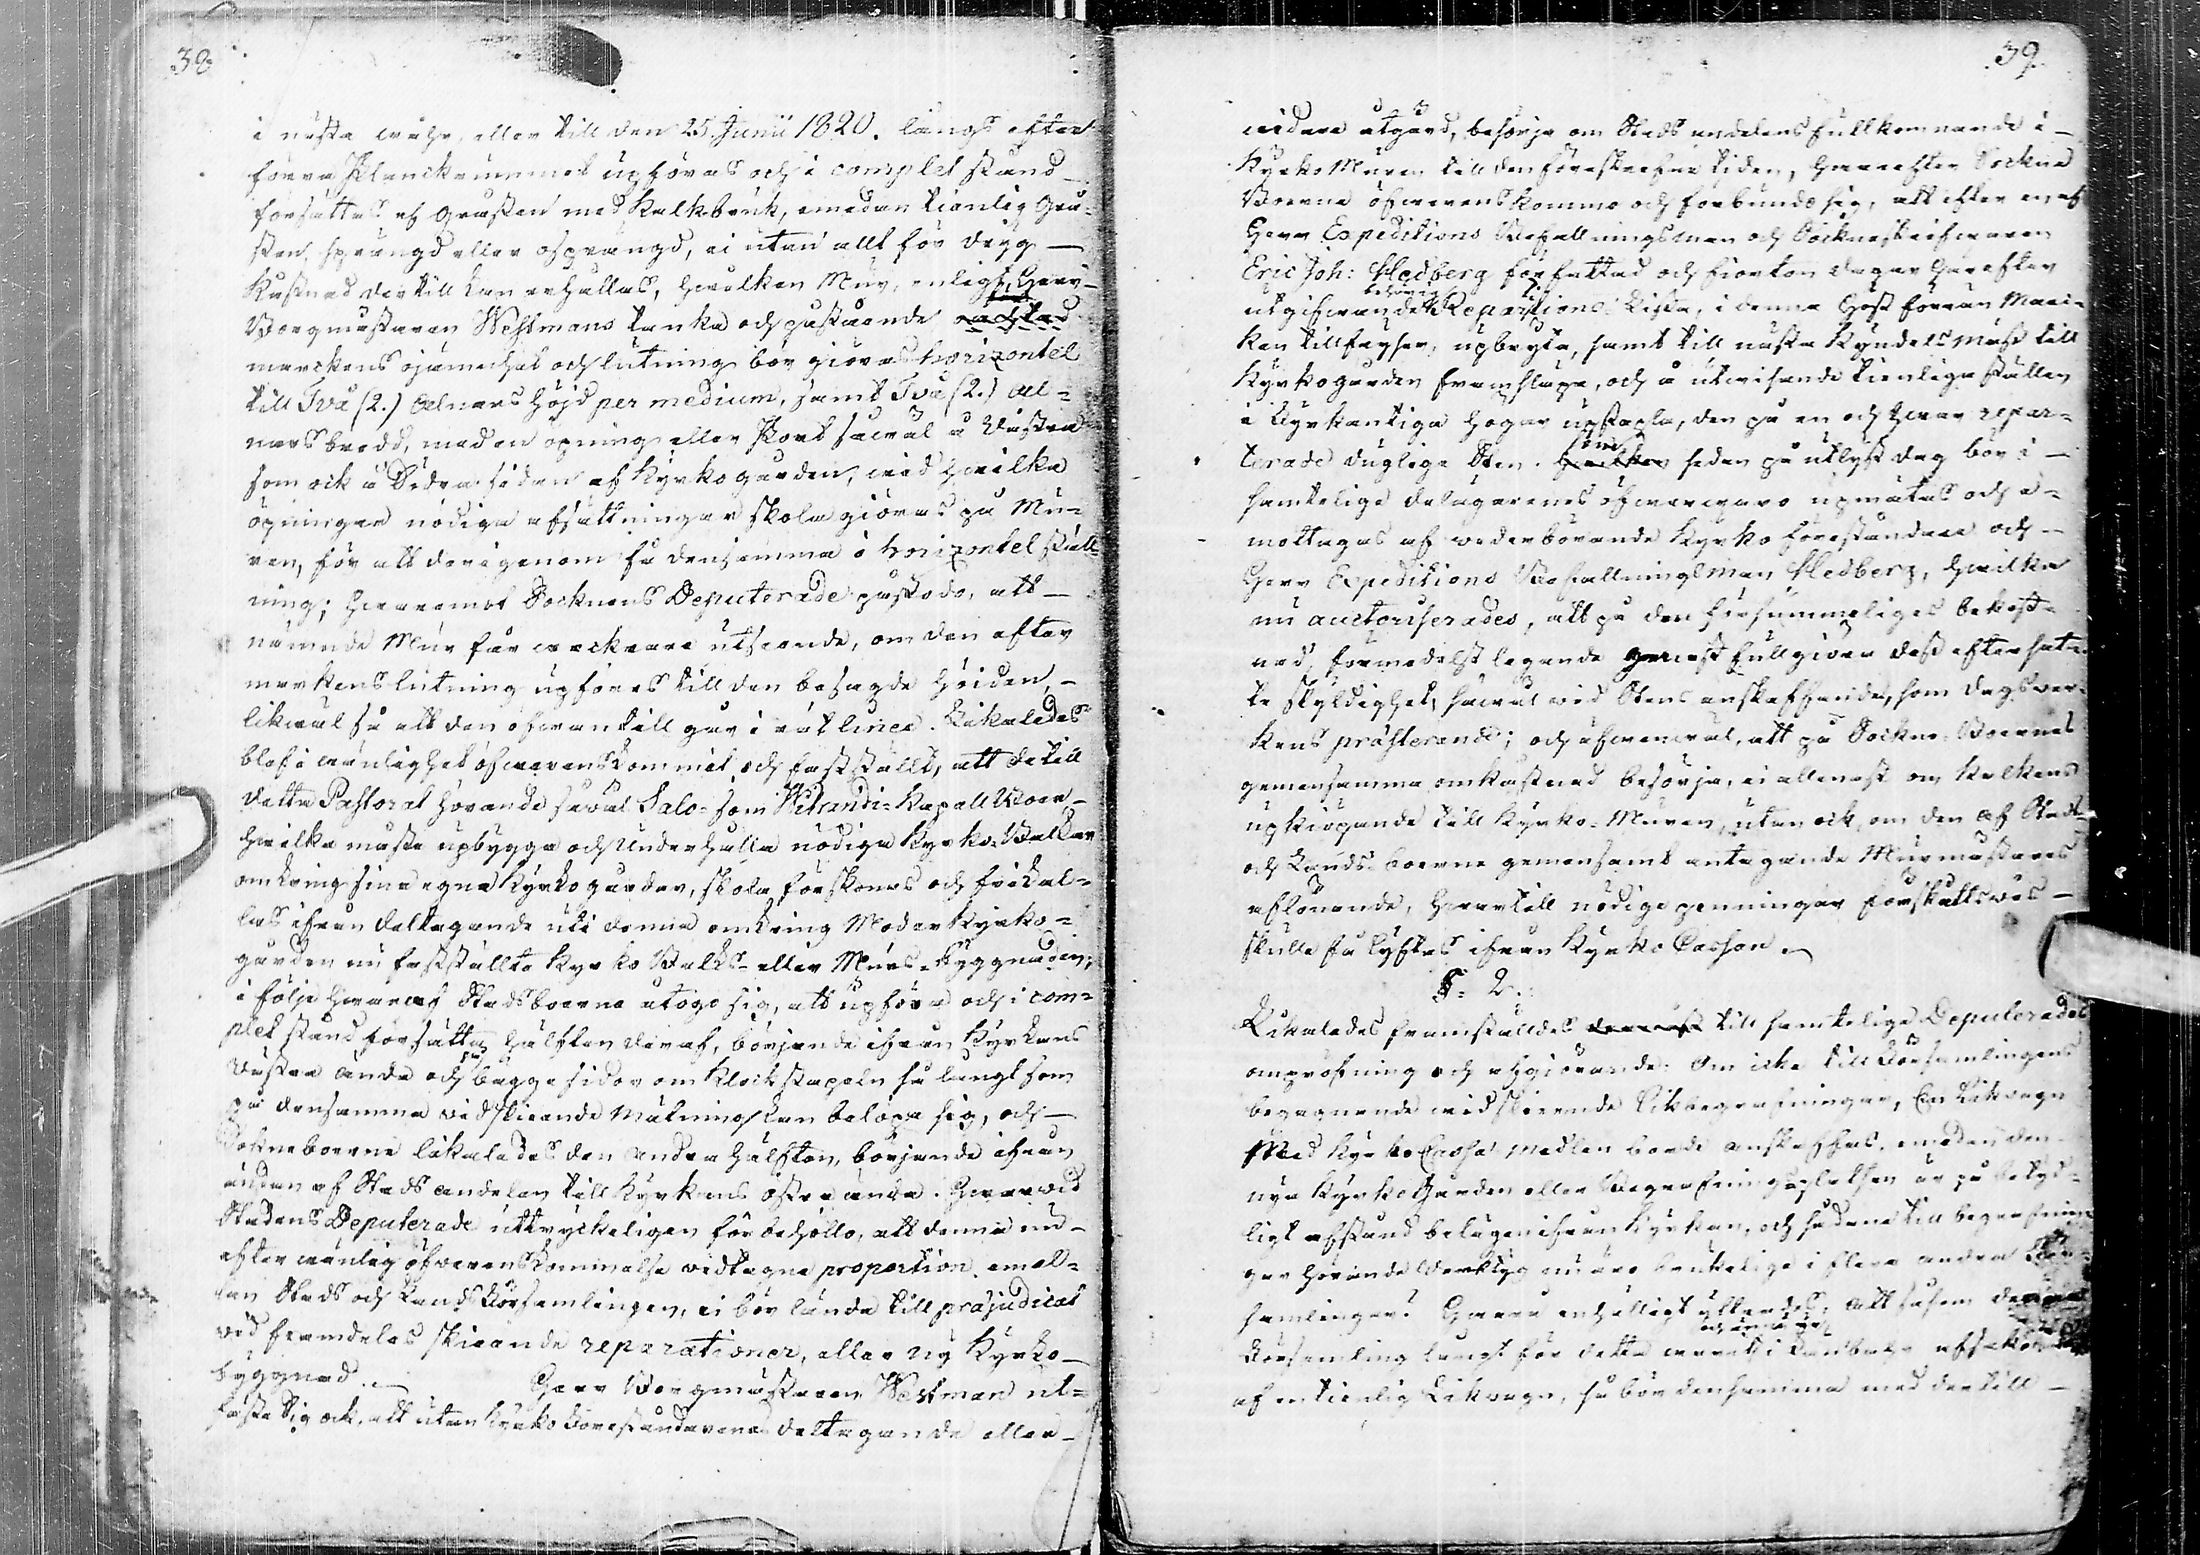 38.
i nästa währ, eller till den 25. Junii 1820. längs efter
förra Planckrummet upföras och i complet stånd
försättas af gråsten med Kalkbruk, emedan tienlig Grå-
sten, sprängd eller osprängd, ei utan allt för dryg
Kåstnad dertill kan erhållas, hwilken Mur, enligt Herr
Borgmästaren Westmans tanka och påstående
marckens ojämnhet och lutning bör giöras horizontel
till Två (2.) Alnars höjd per medium, samt Två (2.) Al-
nars bredd, med en öpning eller Port såwäl å Västra
som ock å Södra sidan af Kyrkogården, wid hwilka
öpningar nödiga afsättningar skola giöras på Mu-
ren, för att derigenom få densamma i horizontel ställ-
ning; hwaremot Socknens Deputerade påstodo, att
nämnde Mur får wackrare utseende, om den efter
markens lutning upföres till den besagde höiden,
likwäl så att den ofwantill går i rät linea. Likaledes
blef i wänlighet öfwerenskommit och fastställt, att de till
detta Pastorat hörande såwäl Salo- som Vihandi-Kapell Boer
hwilka måste upbygga och underhålla nödiga Kyrko-Balkar
omkring sina egna Kyrkogårdar, skola förskonas och frikal-
las ifrån deltagande uti denna omkring Moderkyrko-
gården nu fastställte Kyrko Balks- eller Murs-Byggnaden,
i följe hwaraf Stadsboerne åtogo sig, att upföra och i com-
plet stånd försätta hälften deraf, börjande ifrån Kyrkans
Västra ända och på bägge sidor om Klockstapeln så långt som
på densamma vid skieende mätning kan belöpa sig, och
Sokneboerne likaledes den andra hälften, börjande ifrån
ändan af Stads andelen till Kyrkans östra ända. Hwarwid
Stadens Deputerade uttryckeligen förbehöllo, att denna nu
efter wänlig öfwerenskommelse widtagna proportion emel-
lan Stads och Lands Församlingen, ei bör lända till præjudicat
vid framdeles skieende reparationer, eller ny Kyrko-
byggnad. Herr Borgmästaren Westman ut-
fäste sig ock, att utan Kyrko Föreståndarenes deltagande eller
39.
widare åtgärd, besörja om Stads andelens fullkomnande i
KyrkoMuren till den föreskrefne tiden, hwarefter Sockne
Boerne öfwerenskommo och förbundo sig, att efter en af
Herr Expeditions Befallningsman och Sockneskrifwaren
Eric Joh: Hedberg författad och fiorton dagar härefter
utgifwande behörig Repartitions Lista, i denna höst förrän Mar-
ken tillfryser, upbryta, samt till nästa Kyndelsmäss till
Kyrkogården framsläpa, och å utwisande tienliga ställen
i fyrkantiga högar upstapla, den på en och hwar repar-
terade dugliga Sten. som sedan på utlyst dag bör i
samtelige delägarenes öfwerwaro upmätas och e-
mottagas af wederbörande Kyrko Föreståndare och
Herr Expeditions Befallningsman Hedberg, hwilka
nu auctoriserades, att på den försummeliges bekost-
nad, förmedelst legande genast fullgiöra dess eftersat-
te skyldighet, såwäl wid Stens anskaffande, som dagsver-
kens præsterande; och äfwenwäl, att på Sockne-Boernes
gemensamma omkåstnad besörja, ei allenast om Kalkens
upkiöpande till Kyrko-Muren, utan ock, om den af Stads
och Lands boerne gemensamt antagande Murmästares
aflönande, hwartill nödige penningar förskottswis
skulle få lyftas ifrån Kyrko Cassan.
§. 2.
Likaledes framställdes till samtelige Deputerades
ompröfning och afgiörande: Om icke till Församlingens
begagnande wid skieende Likbegrafningar, En Likvagn
Med Kyrko Cassa medlen borde anskaffas, emedan den
nya KyrkoGården eller Begrafningsplatsen är på betyd-
ligt afstånd belägen ifrån Kyrkan, och sådana till begrafnin-
gar hörande Verktyg nu äro brukelige i flere andra För-
samlingar? Hwarå enhälligt yttrades, att såsom
Församling långt för detta warit i
af en tienlig Likvagn, så bör densamma med dertill